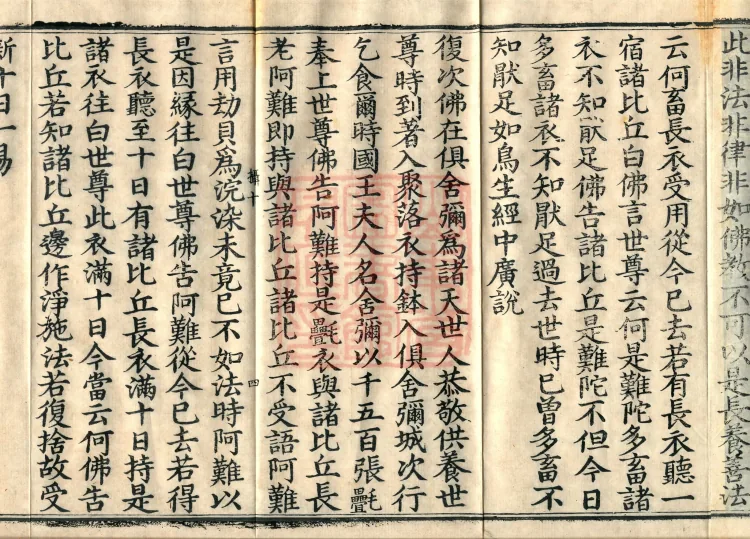 此非法非律非如佛教不可以是長養善法
云何畜長衣受用從今已去若有長衣聽一
宿諸比丘白佛言世尊云何是難陀多畜諸
衣不知猒足佛告諸比丘是難陀不但今日
多畜諸衣不知猒足過去世時已曾多畜不
知猒足如鳥生經中廣說
復次佛在俱舍彌爲諸天世人恭敬供養世
尊時到著入聚落衣持鉢入俱舍彌城次行
乞食爾時國王夫人名舍彌以千五百張㲲
奉上世尊佛告阿難持是㲲衣與諸比丘長
老阿難即持與諸比丘諸比丘不受語阿難
言用劫貝爲浣染未竟已不如法時阿難以
是因緣往白世尊佛告阿難從今已去若得
長衣聽至十日有諸比丘長衣滿十日持是
諸衣往白世尊此衣滿十日今當云何佛告
比丘若知諸比丘邊作淨施法若復捨故受
新十日一易